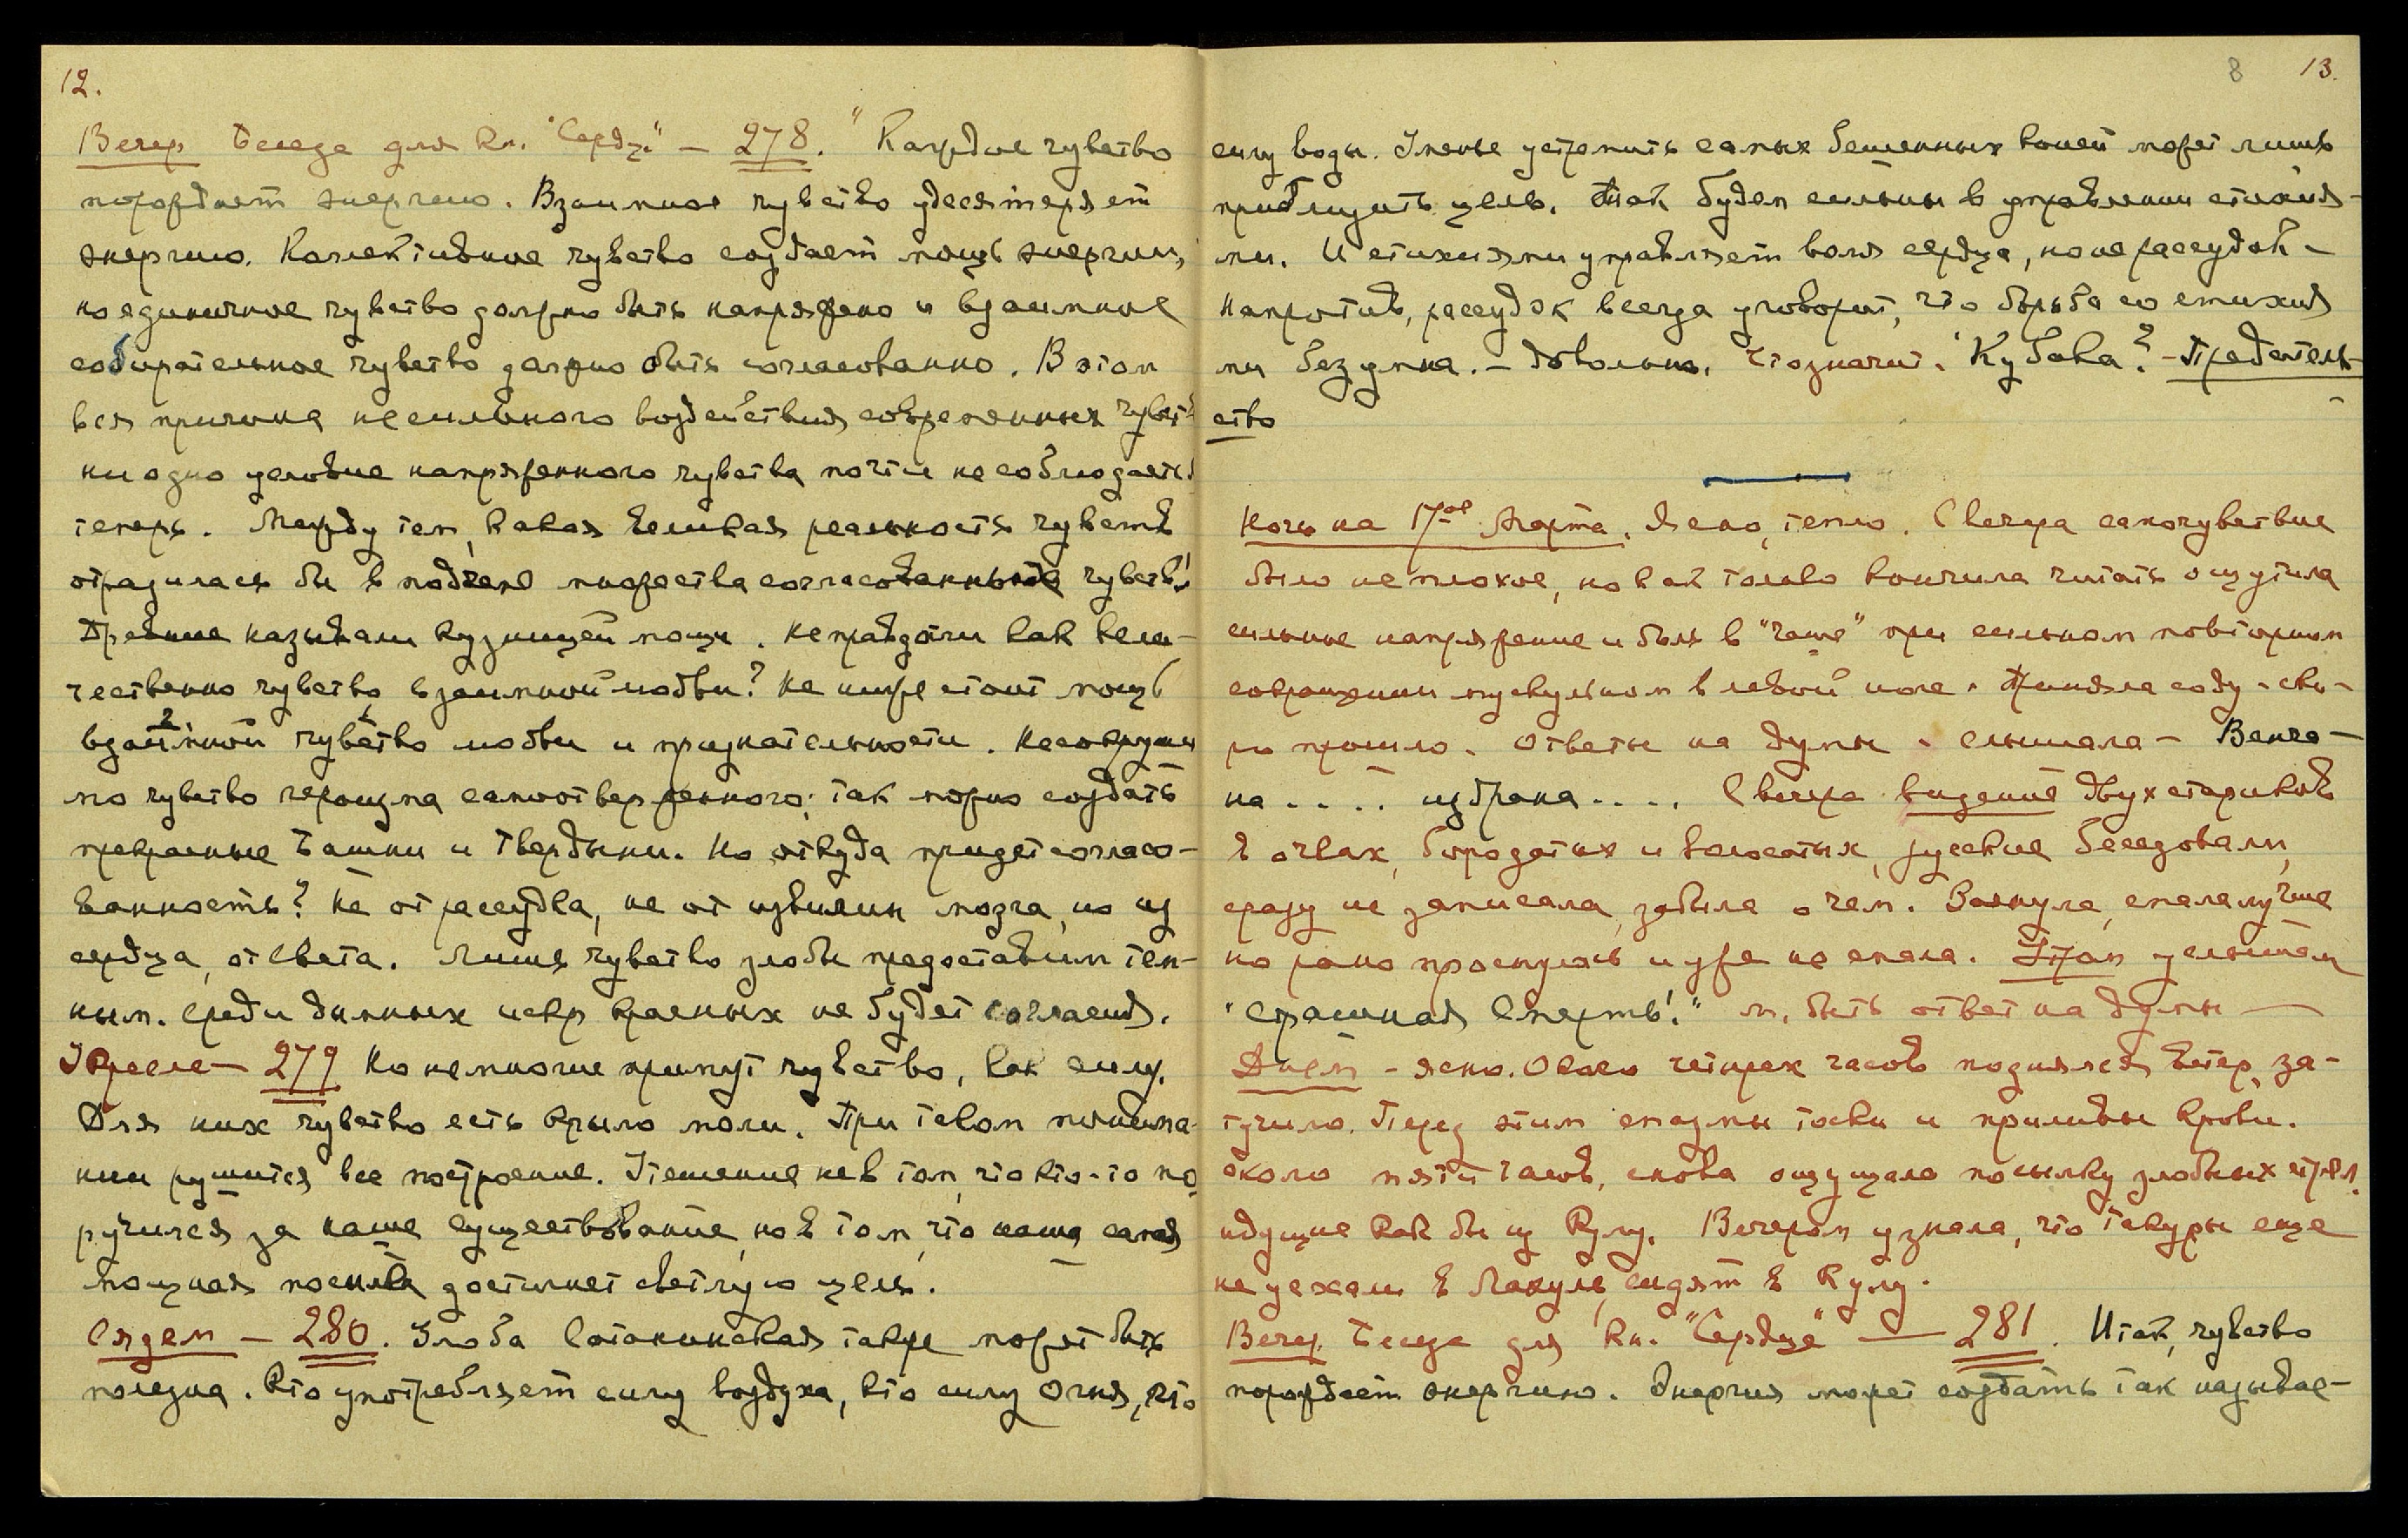 12.
Вечер Беседа для кн. "Сердц." — 278. "Каждое чувство
порождает энергию. Взаимное чувство удесятеряет
энергию. Коллективное чувство создает мощь энергии,
но единичное чувство должно быть напряжено и взаимное
собирательное чувство должно быть согласованно. В этом
вся причина несильного воздействия современных чувств
ни одно условие напряженного чувства почти не соблюдается
теперь. Между тем, какая великая реальность чувств
отразилась бы в подъеме множества согласованных чувств!
Древние называли кузницей мощи. Не правда ли как вели-
чественно чувство взаимной любви? Не ниже стоит мощь
взаимной чувство любви и признательности. Несокруши
мо чувство героизма самоотверженного; так можно создать
прекрасные Башни и Твердыни. Но откуда придет согласо-
ванность? Не от рассудка, не от извилин мозга, но из
сердца, от Света. Лишь чувство злобы предоставим тем-
ным. Среди дымных искр красных не будет согласия.
Кресле — 279 Но немногие примут чувство, как силу.
Для них чувство есть крыло моли. При таком понима-
нии рушится все построение. Утешение не в том, что кто-то по
ручился за наше существование, но в том, что наша самая
мощная посылка достигнет светлую цель.
Сядем — 280. Злоба Сатанинская также может быть
полезна. Кто употребляет силу воздуха, кто силу Огня, кто
8 13.
силу воды. Уменье устремить самых бешенных коней может лишь
приблизить цель. Так будем сильны в управлении стихия-
ми. И стихиями управляет воля сердца, но не рассудок —
Напротив, рассудок всегда уговорит, что борьба со стихия
ми безумна. — Довольно. Что значит. "Кубака? — Предатель-
ство
Ночь на 17ое Марта. Ясно, тепло. С вечера самочувствие
было не плохое, но как только кончила читать ощутила
сильное напряжение и боль в "чаше" при сильном повторном
сокращении мускульном в левой ноге. Приняла соду - ско-
ро прошло. Ответы на думы - слышала — Венча-
на . . . . избрана . . . . С вечера видение двух стариков
в очках, бородатых и волосатых, русские беседовали,
сразу не записала, забыла о чем. Заснула, спала лучше
но рано проснулась и уже не спала. Утром услышала
"Страшная Смерть!" м. быть ответ на думы —
Днем - ясно. Около четырех часов поднялся ветер, за-
тучило. Перед этим спазмы тоски и приливы крови.
около пяти часов, снова ощущала посылку злобных стрел.
идущие как бы из Кулу. Вечером узнала, что Такуры еще
не уехали в Манули, сидят в Кулу.
Вечер. Беседа для кн. "Сердце" — 281. Итак, чувство
порождает энергию. Энергия может создать так называе-